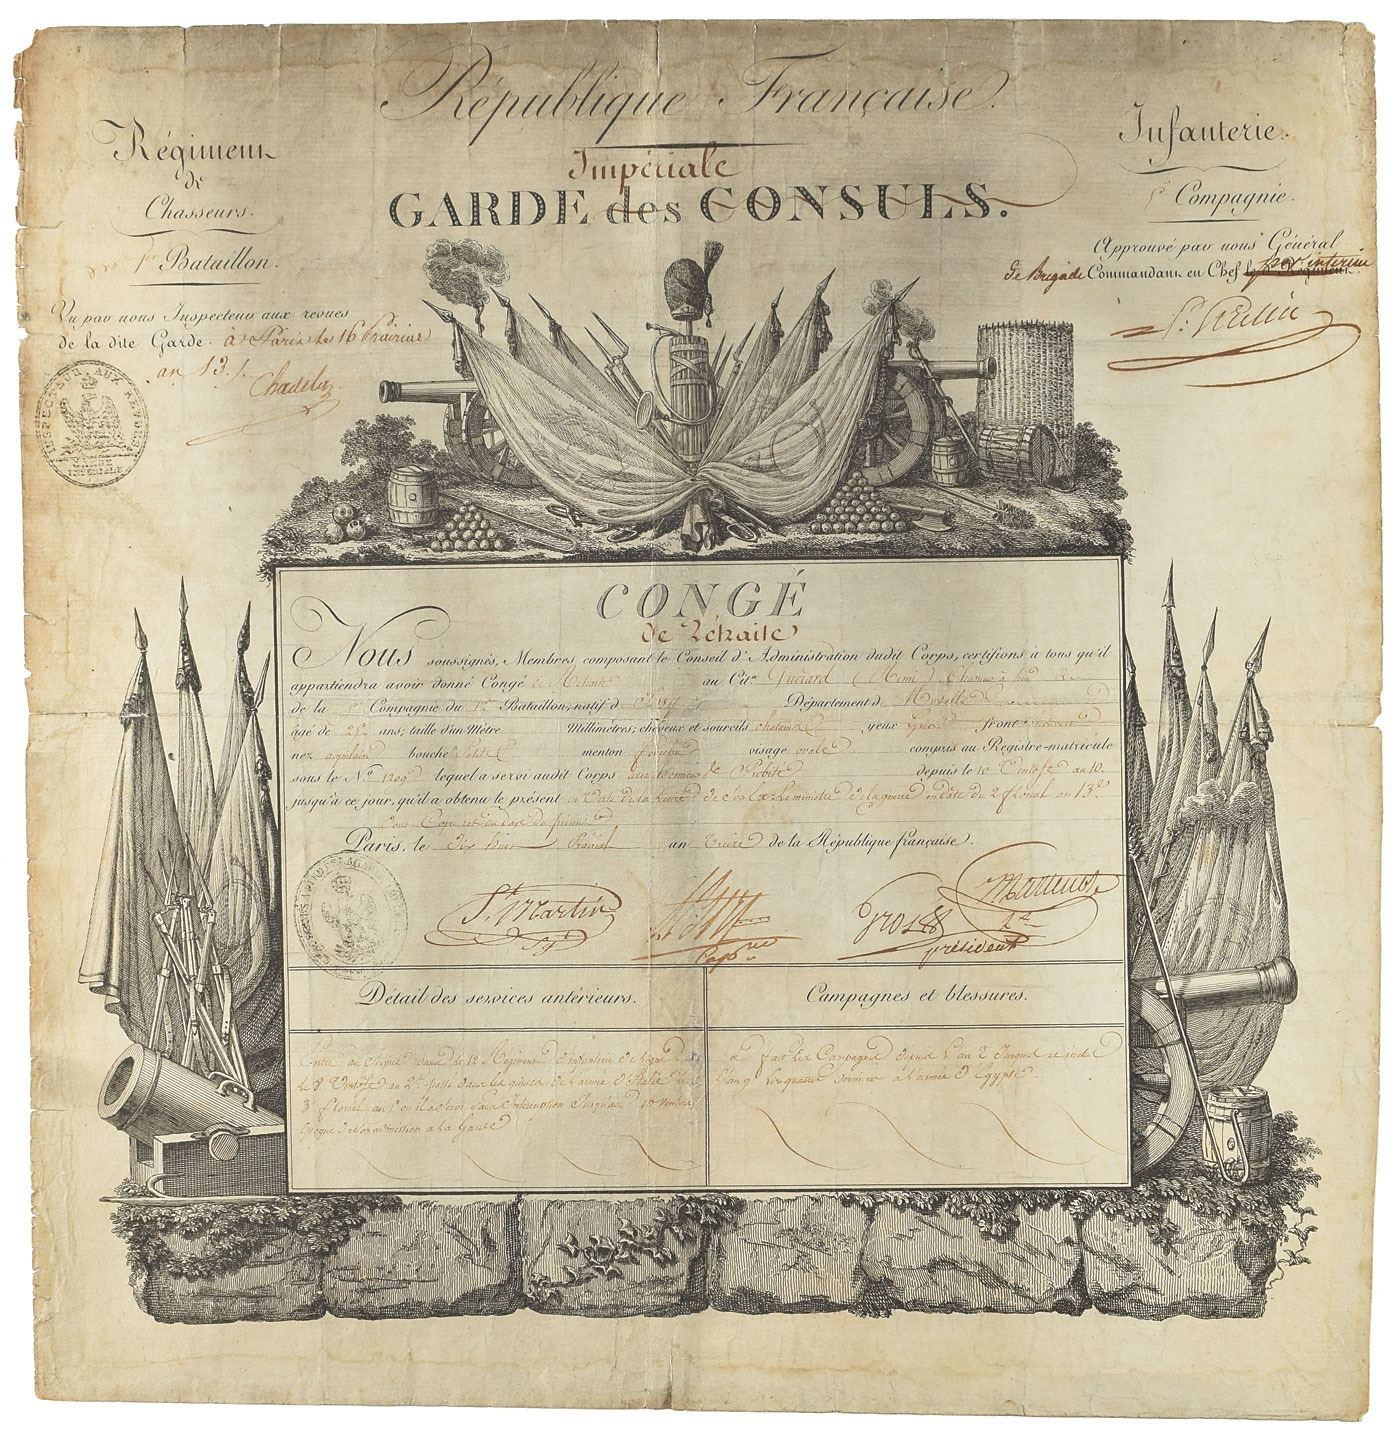 République Française.
Régiment
de
Chasseurs.
1er Bataillon.
Infanterie.
Compagnie.
Impériale
GARDE des CONSULS.
Approuvé par nous Général
de Brigade Commandant en Chef par interim
Vu par nous Inspecteur aux revues
de la dite Garde. à Paris le 16 Prairial
an 13.
INSPECTEUR AUX REVUES
GARDE IMPERIALE
CONGÉ
de Rétraite
Nous soussignés, Membres composant le Conseil d'Administration dudit Corps, certifions à tous qu'il
appartiendra avoir donné Congé de Retraite au Citn. Guérard
de la Compagnie du 1er Bataillon; natif d Département d Moselle
âgé de 25 ans; taille d'un Mètre Millimètres; cheveux et sourcils chatains yeux front
nez aquilain bouche petite menton visage ovale compris au Registre-matricule
sous le No. 1209 lequel a servi audit Corps avec Honneur & Probité depuis le 10 Ventose an 10.
jusqu'à ce jour, qu'il a obtenu le présent en Vertu de la de Son Ex. le ministre de la guerre en date du 2 floréal an 13
Paris, le dix huit Prairial an Treize de la République française.
St. Martin
Gros
président
Détail des services antérieurs.
Campagnes et blessures.
Entré au Service dans le Régiment d'infanterie de ligne
le 8 Ventose an 2. passé dans les guides de l'armée d'Italie le
3 floréal an 5 où il a servi sans Interruption Jusqu'au 10 Ventose
époque de son admission à la Garde
a fait les Campagnes depuis l'an 2 Jusques et inclus
l'an 9 les quatre dernières à l'armée d'Egypte.